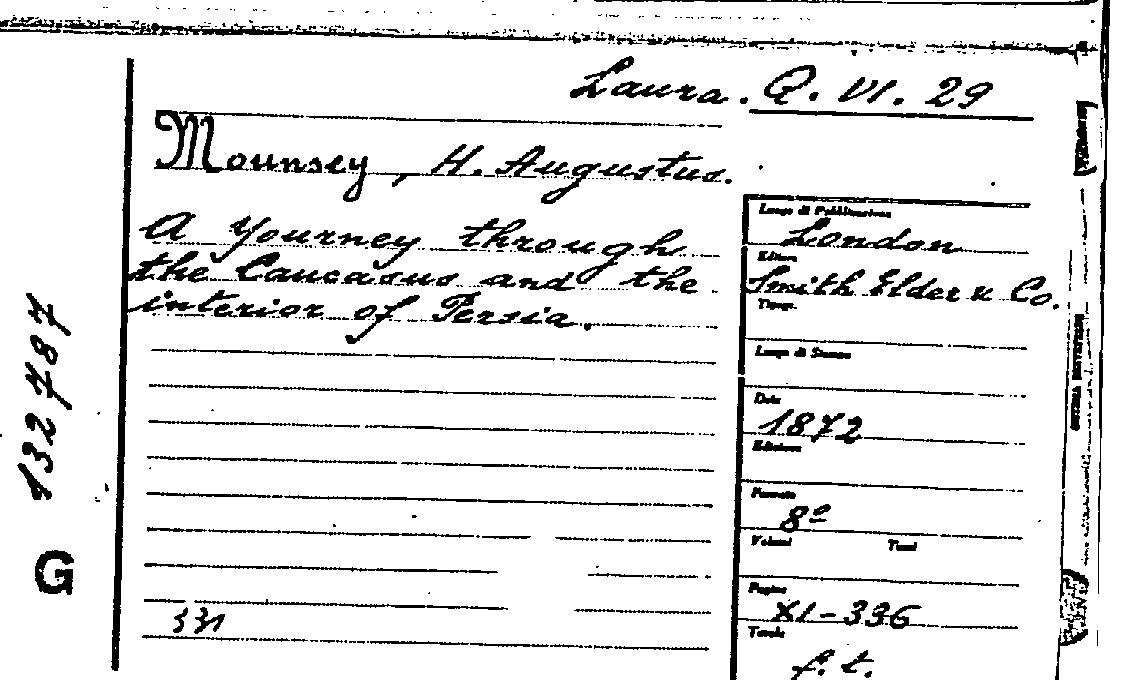 Laura. Q. VI. 29
Mounsey, H. Augustus.
A Yourney through
the Caucasus and the
interior of Persia.
Luogo di Pubblicazione
London
Editore
Smith Elder & Co.
Tipogr.
Luogo di Stampa
Data
1872
Edizione
Formato
8º
Volumi Tomi
Pagine
XI-336
Tavole
f. t.
331
G 132787